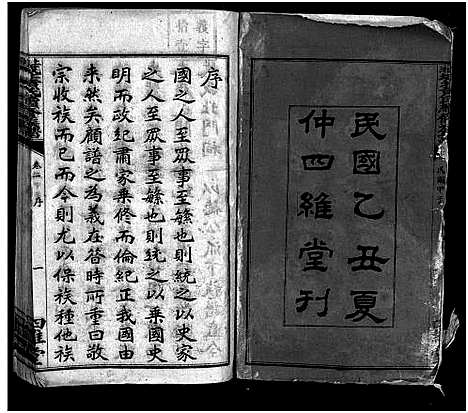 民國乙丑夏
仲四維堂刊
序
國之人至眾事至緐也則統之以史家
之人至眾事至緐也則統之以乘國史
明而政紀肅家乘修而倫紀正我國由
來然矣顧譜之為義在昔時所重曰敬
宗收族而已而今則尤以保族種他族
一
四維堂